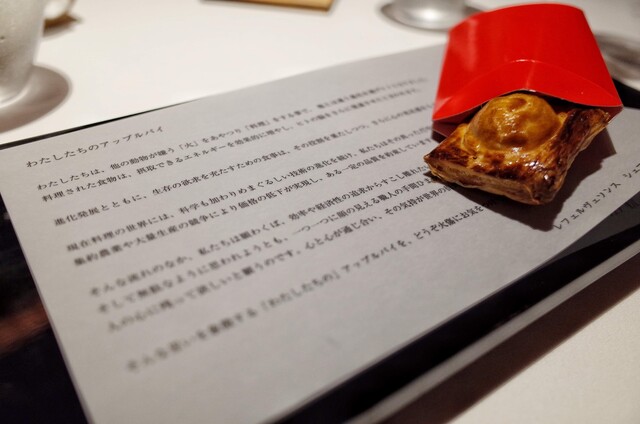 わたしたちのアップルパイ
わたしたちは、他の動物が嫌う「火」をあやつり「料理」をする事で、
料理された食物は、摂取できるエネルギーを効果的に増やし、
進化発展とともに、生存の欲求を充たすための食事は、その役割を
現在料理の世界には、科学も加わりめまぐるしい技術の進化を続け、私たちは
集約農業や大量生産の競争により価格の低下が実現し、ある一定の品質を約束しています
そんな流れのなか、私たちは願わくば、効率や経済性の追求からすこし離れ
そして無駄なように思われようとも、一つ一つに顔の見える職人の手間
人の心に残って欲しいと願うのです。心と心が通じ合い、その気持が世界の
そんな思いを象徴する「わたしたちの」アップルパイを、どうぞ火傷にお気を
レフェルヴェソンス シェフ